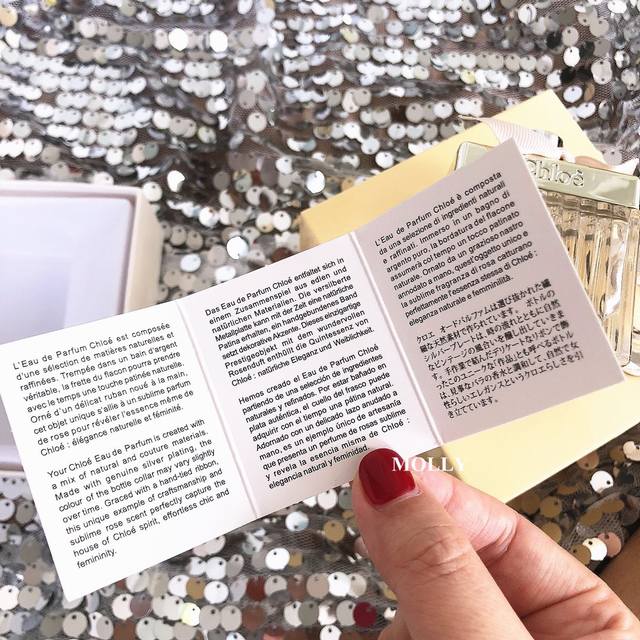 L'Eau de Parfum Chloé est composée
d'une sélection de matières naturelles et
raffinées. Trempée dans un bain d'argent
véritable, la frette du flacon pourra prendre
avec le temps une touche patinée naturelle.
Orné d'un délicat ruban noué à la main,
cet objet unique s'allie à un sublime parfum
de rose pour révéler l'essence même de
Chloé : élégance naturelle et féminité.
Your Chloé Eau de Parfum is created with
a mix of natural and couture materials.
Made with genuine silver plating, the
colour of the bottle collar may vary slightly
over time. Graced with a hand-tied ribbon,
this unique example of craftmanship and
sublime rose scent perfectly capture the
house of Chloé spirit, effortless chic and
femininity.
Das Eau de Parfum Chloé entfaltet sich in
dem Zusammenspiel aus edlen und
natürlichen Materialien. Die versilberte
Metallplatte kann mit der Zeit eine natürliche
Patina erhalten, ein handgebundenes Band
setzt dekorative Akzente. Dieses einzigartige
Prestigeobjekt mit dem wundervollen
Rosenduft enthüllt die Quintessenz von
Chloé : natürliche Eleganz und Weiblichkeit.
Hemos creado el Eau de Parfum Chloé
partiendo de una selección de ingredientes
naturales y refinados. Por estar bañado en
plata auténtica, el cuello del frasco puede
adquirir con el tiempo una pátina natural.
Adornado con un delicado lazo anudado a
mano, es un ejemplo único de artesanía
que presenta un perfume de rosas sublime
y revela la esencia misma de Chloé :
elegancia natural y feminidad.
L'Eau de Parfum Chloé è composta
da una selezione di ingredienti naturali
e raffinati. Immerso in un bagno di
argento puro, la bordatura del flacone
assumerà col tempo un tocco patinato
naturale. Ornato da un grazioso nastro
annodato a mano, quest'oggetto unico e
la sublime fragranza di rosa catturano
perfettamente l'essenza stessa di Chloé :
eleganza naturale e femminilità.
クロエ オードパルファムは選び抜かれた繊
細な天然素材で作られています。ボトルの
シルバープレートは、時の流れとともに自然
なヴィンテージの風合いを醸し出していきま
す。手作業で結んだデリケートなリボンで飾
ったこのユニークな作品とも呼べるボトル
は、見事なバラの香水と調和して、自然で女
性らしいエレガンスというクロエらしさを引
き立てています。
Chloé
MOLLY